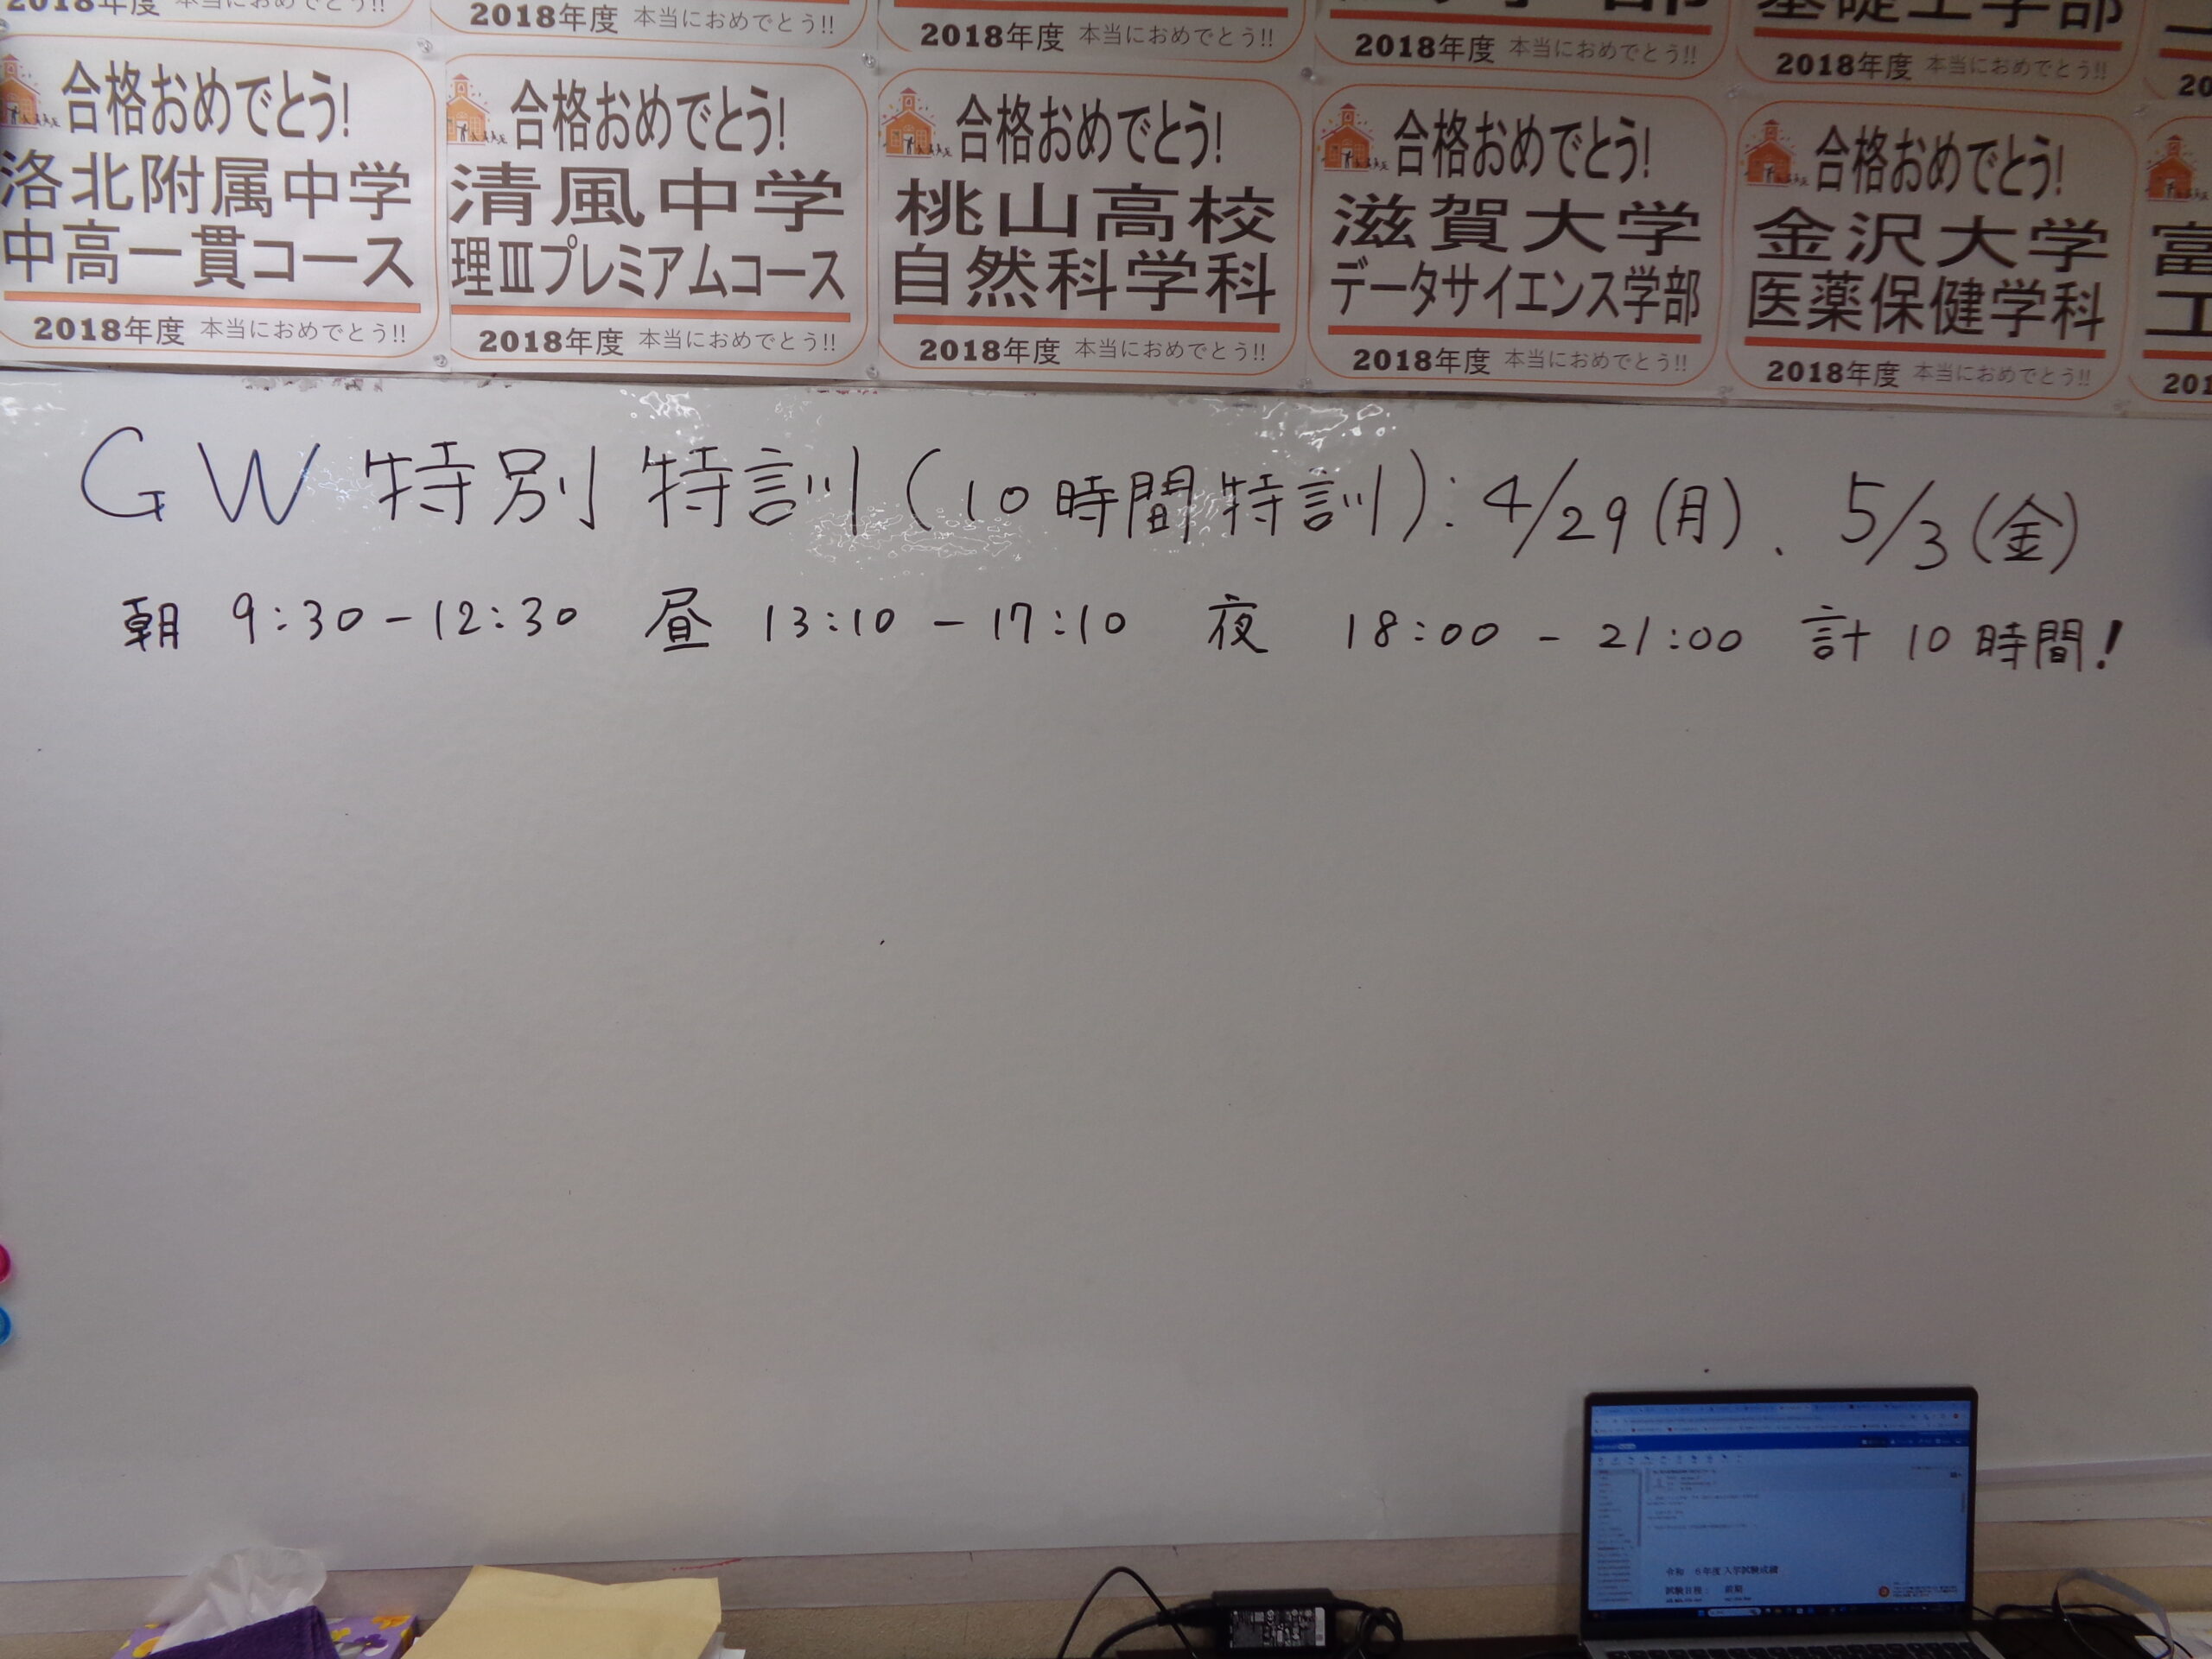 2018年度 本当におめでとう!!
2018年度 本当におめでとう!!
2018年度 本当におめでとう!!
2018年度 本当におめでとう!!
基礎工学部
2018年度 本当におめでとう!!
合格おめでとう!
洛北附属中学
中高一貫コース
2018年度 本当におめでとう!!
合格おめでとう!
清風中学
理Ⅲプレミアムコース
2018年度 本当におめでとう!!
合格おめでとう!
桃山高校
自然科学科
2018年度 本当におめでとう!!
合格おめでとう!
滋賀大学
データサイエンス学部
2018年度 本当におめでとう!!
合格おめでとう!
金沢大学
医薬保健学科
2018年度 本当におめでとう!!
富
工
201
GW特別特訓(10時間特訓):4/29(月)、5/3(金)
朝 9:30-12:30 昼 13:10-17:10 夜 18:00-21:00 計10時間!
令和 6年度 入学試験成績
試験日程: 前期